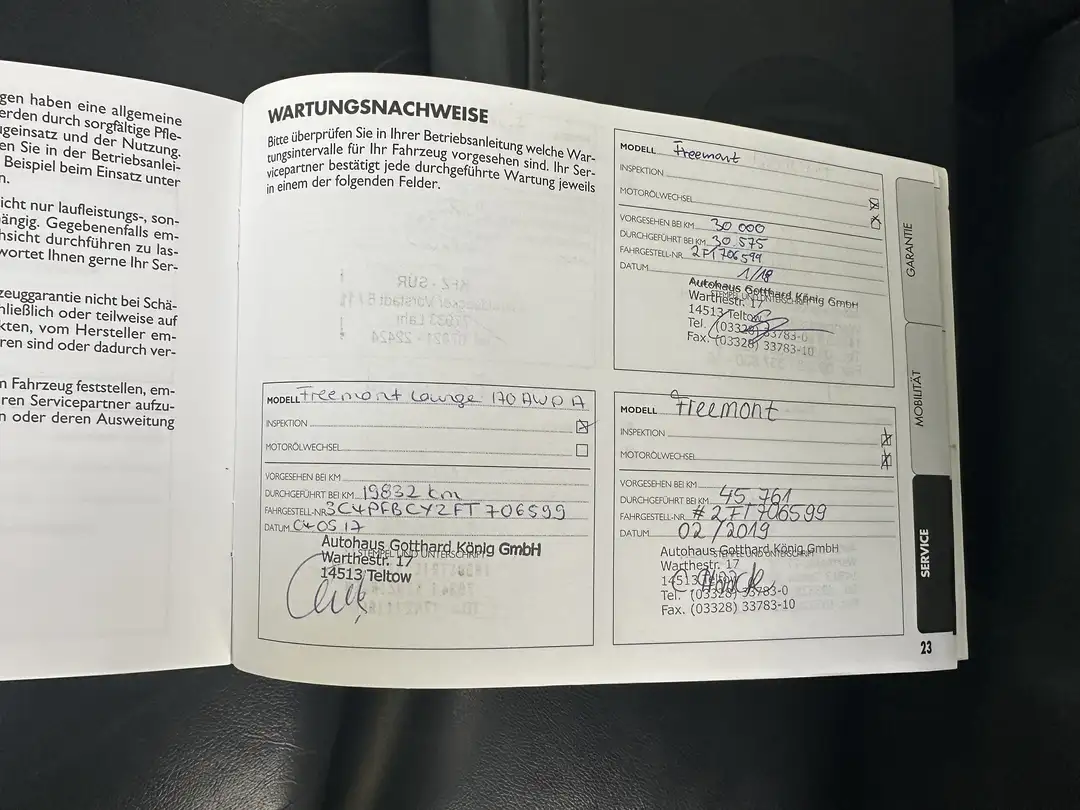 gen haben eine allgemeine
erden durch sorgfältige Pfle-
ugeinsatz und der Nutzung.
en Sie in der Betriebsanlei-
Beispiel beim Einsatz unter
n.
icht nur laufleistungs-, son-
ängig. Gegebenenfalls em-
hsicht durchführen zu las-
wortet Ihnen gerne Ihr Ser-
zeuggarantie nicht bei Schä-
hließlich oder teilweise auf
kten, vom Hersteller em-
ren sind oder dadurch ver-
m Fahrzeug feststellen, em-
ren Servicepartner aufzu-
n oder deren Ausweitung
WARTUNGSNACHWEISE
Bitte überprüfen Sie in Ihrer Betriebsanleitung welche War-
tungsintervalle für Ihr Fahrzeug vorgesehen sind. Ihr Ser-
vicepartner bestätigt jede durchgeführte Wartung jeweils
in einem der folgenden Felder.
MODELL Freemont Lounge 170 AWD A
INSPEKTION
MOTORÖLWECHSEL
VORGESEHEN BEI KM
DURCHGEFÜHRT BEI KM 19832 km
FAHRGESTELL-NR. 3C4PFBCY2FT706599
DATUM 04 05 17
STEMPEL UND UNTERSCHRIFT
Autohaus Gotthard König GmbH
Warthestr. 17
14513 Teltow
MODELL Freemont
INSPEKTION
MOTORÖLWECHSEL
VORGESEHEN BEI KM 30 000
DURCHGEFÜHRT BEI KM 30 575
FAHRGESTELL-NR. 2FT706599
DATUM 1/18
STEMPEL UND UNTERSCHRIFT
Autohaus Gotthard König GmbH
Warthestr. 17
14513 Teltow
Tel. (03328) 33783-0
Fax. (03328) 33783-10
MODELL Freemont
INSPEKTION
MOTORÖLWECHSEL
VORGESEHEN BEI KM
DURCHGEFÜHRT BEI KM 45 761
FAHRGESTELL-NR. # 2FT706599
DATUM 02/2019
STEMPEL UND UNTERSCHRIFT
Autohaus Gotthard König GmbH
Warthestr. 17
14513 Teltow
Tel. (03328) 33783-0
Fax. (03328) 33783-10
GARANTIE
MOBILITÄT
SERVICE
23